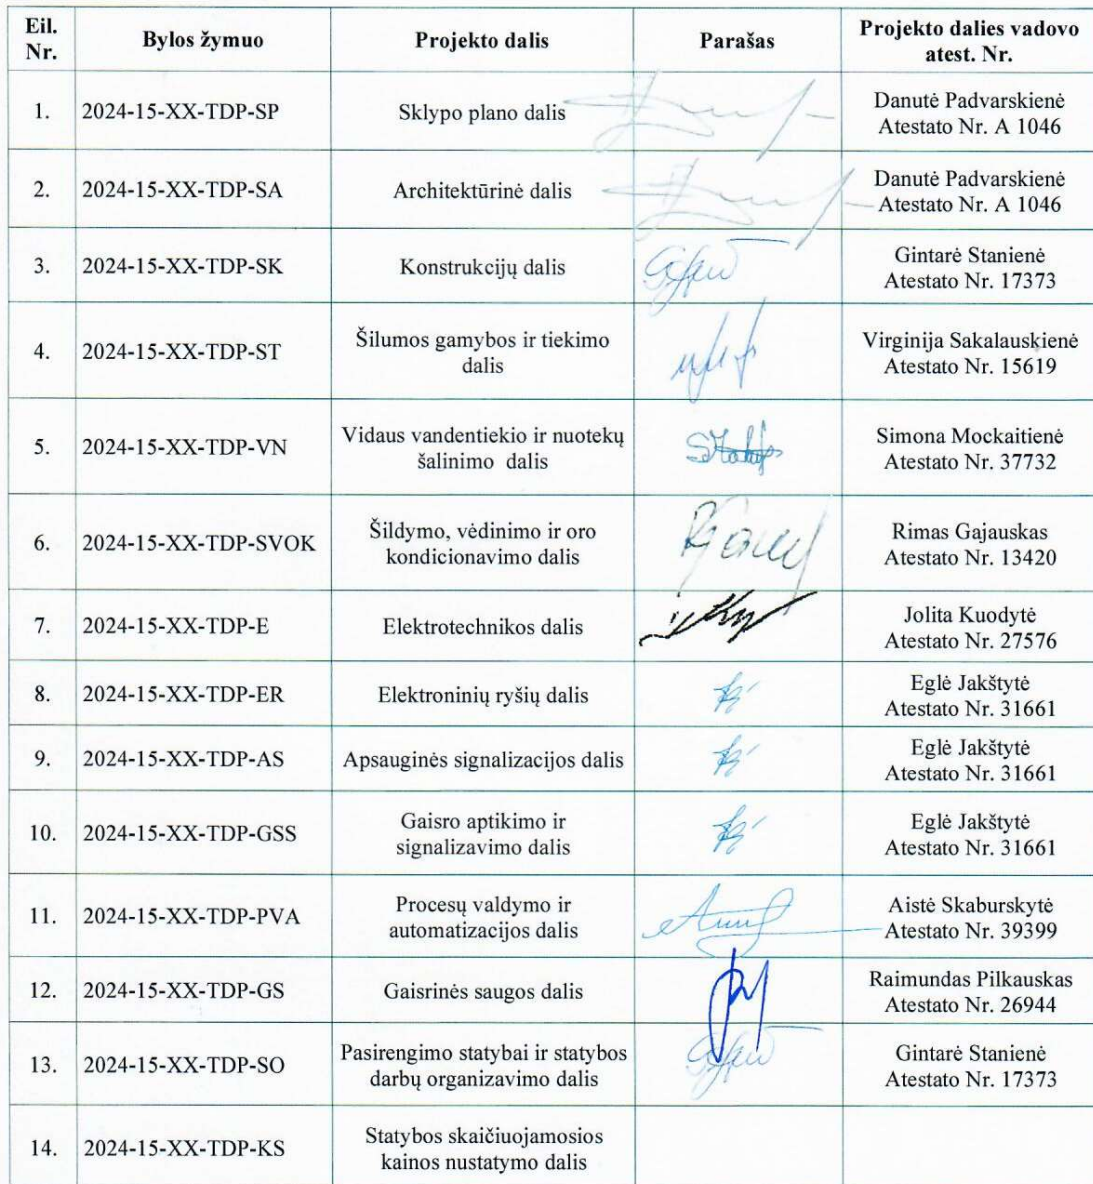 Eil. Nr. Bylos žymuo Projekto dalis Parašas Projekto dalies vadovo atest. Nr.
1. 2024-15-XX-TDP-SP Sklypo plano dalis Danutė Padvarskienė
Atestato Nr. A 1046
2. 2024-15-XX-TDP-SA Architektūrinė dalis Danutė Padvarskienė
Atestato Nr. A 1046
3. 2024-15-XX-TDP-SK Konstrukcijų dalis Gintarė Stanienė
Atestato Nr. 17373
4. 2024-15-XX-TDP-ST Šilumos gamybos ir tiekimo
dalis Virginija Sakalauskienė
Atestato Nr. 15619
5. 2024-15-XX-TDP-VN Vidaus vandentiekio ir nuotekų
šalinimo dalis Simona Mockaitienė
Atestato Nr. 37732
6. 2024-15-XX-TDP-SVOK Šildymo, vėdinimo ir oro
kondicionavimo dalis Rimas Gajauskas
Atestato Nr. 13420
7. 2024-15-XX-TDP-E Elektrotechnikos dalis Jolita Kuodytė
Atestato Nr. 27576
8. 2024-15-XX-TDP-ER Elektroninių ryšių dalis Eglė Jakštytė
Atestato Nr. 31661
9. 2024-15-XX-TDP-AS Apsauginės signalizacijos dalis Eglė Jakštytė
Atestato Nr. 31661
10. 2024-15-XX-TDP-GSS Gaisro aptikimo ir
signalizavimo dalis Eglė Jakštytė
Atestato Nr. 31661
11. 2024-15-XX-TDP-PVA Procesų valdymo ir
automatizacijos dalis Aistė Skaburskytė
Atestato Nr. 39399
12. 2024-15-XX-TDP-GS Gaisrinės saugos dalis Raimundas Pilkauskas
Atestato Nr. 26944
13. 2024-15-XX-TDP-SO Pasirengimo statybai ir statybos
darbų organizavimo dalis Gintarė Stanienė
Atestato Nr. 17373
14. 2024-15-XX-TDP-KS Statybos skaičiuojamosios
kainos nustatymo dalis